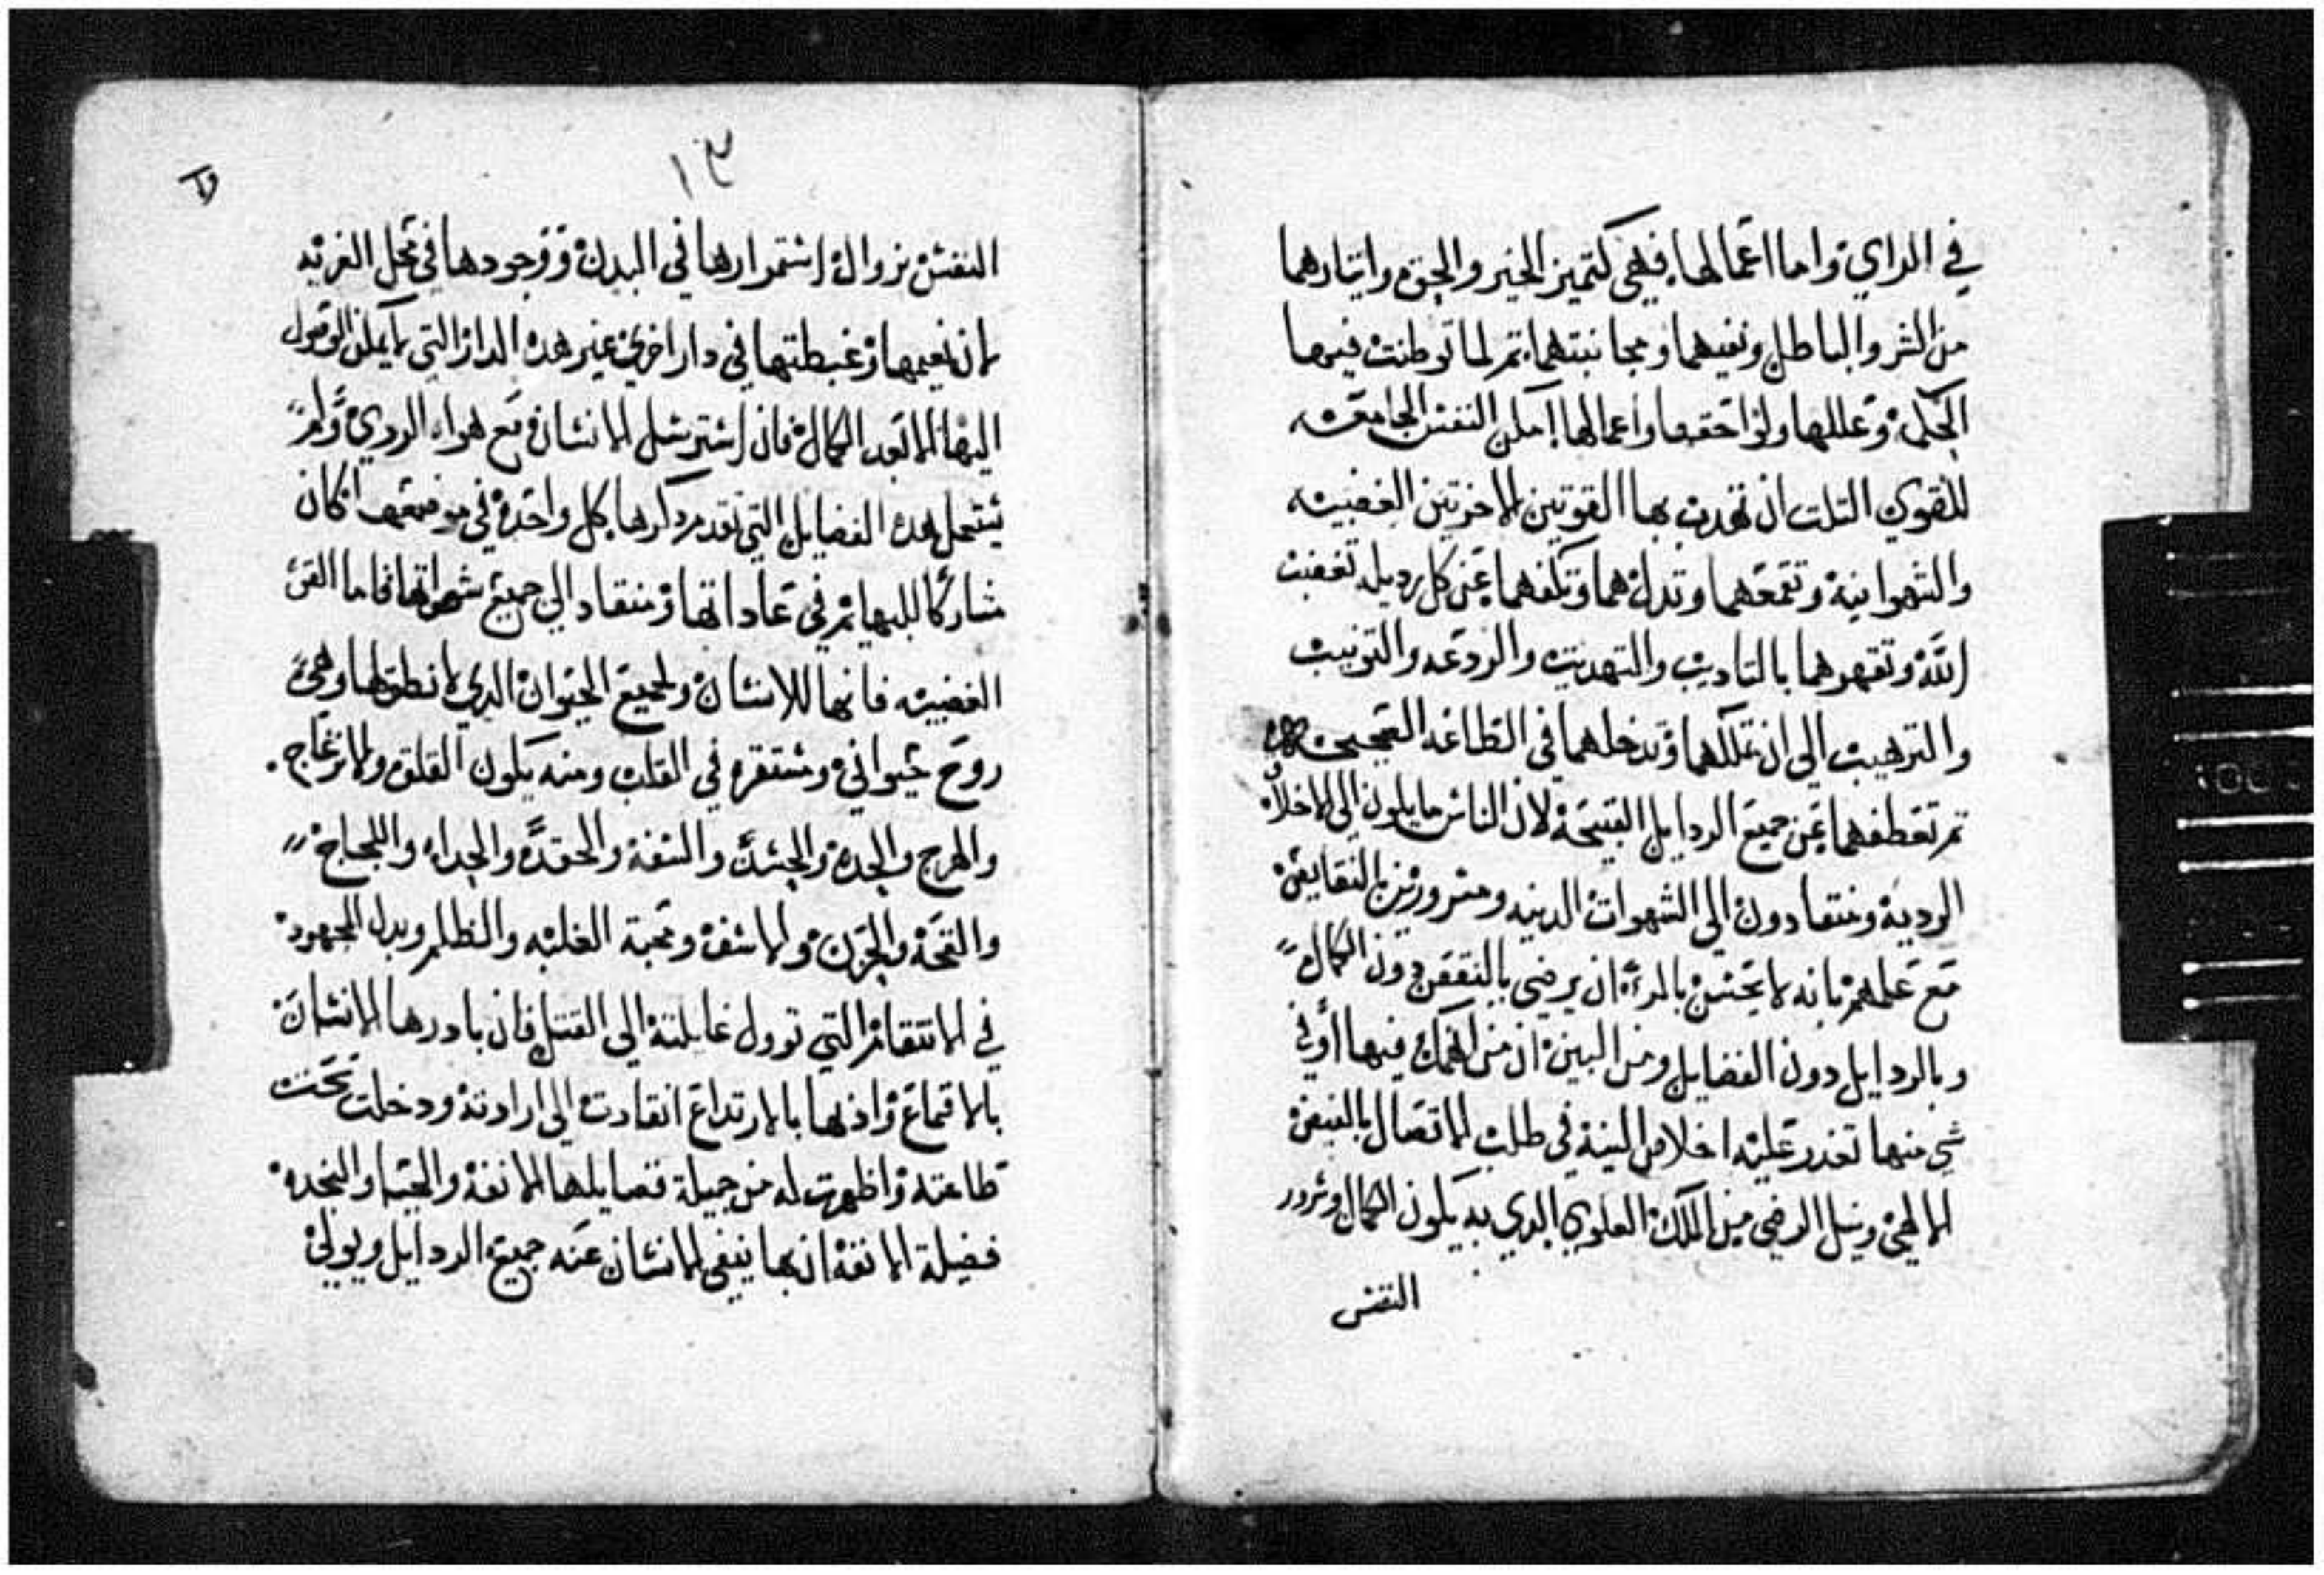 في الراي واما اعمالها فهي كتميز الخير والحق وايتارهما
من الشر والباطل ونفيهما ومجانبتهما تم لما توطنت فيها
الحكمه وعللها ولواحقها واعمالها امكن النفس الجامعه
للقوي التلت ان تهدب بها القوتين الاخرتين الغضبيه
والشهوانيه وتقمعهما وتدلهما وتكفهما عن كل رديله تغضب
الله وتقهرهما بالتاديب والتهديب والردعه والتونيب
والترهيب الي ان تملكهما وتدخلهما في الطاعه الصحيحه
تم تعطفهما عن جميع الردايل القبيحه لان الناس مايلون الي الاخلاق
الرديه ومنقادون الي الشهوات الدنيه ومسرورين بالنقايص
مع علمهم بانه لا يحسن بالمرء ان يرضي بالنقص دون الكمال
وبالردايل دون الفضايل ومن البين ان من انهمك فيها أو في
شي منها تعدر عليه اخلاص النية في طلب الاتصال بالفيض
الالهي ونيل الرضي من الملك العلوي الدي به يكون الكمال وسرور
النفس
١٣
النفس بزوال استمرارها في البدن ووجودها في محل الغربه
لان نعيمها وغبطتها في دار اخري غير هده الدار التي لا يمكن الوصول
اليها الا بعد الكمال فان استرسل الانسان مع هواه الردي ولم
يستعمل هده الفضايل التي تقدم دكرها كل واحده في موضعها كان
مشاركا للبهايم في عاداتها ومنقاد الي جميع شهواتها فاما القوي
الغضبيه فانها للانسان ولجميع الحيوان الدي لا نطق لها وهي
روح حيواني ومستقره في القلب ومنه يكون القلق والانزعاج
والهرج والحده والحسد والسفه والحقد والجداء واللجاج
والقحه والحزن والاسف ومحبة الغلبه والظلم وبدل المجهود
في الانتقام التي توول غايلته الي القتل فان بادرها الانسان
بالاقماع وادبها بالارتداع انقادت الي ارادته ودخلت تحت
طاعته واظهرت له من جميلة فضايلها الانفه والحميه والنجده
فضيلة الانفه ان بها ينفي الانسان عنه جميع الردايل ويولي